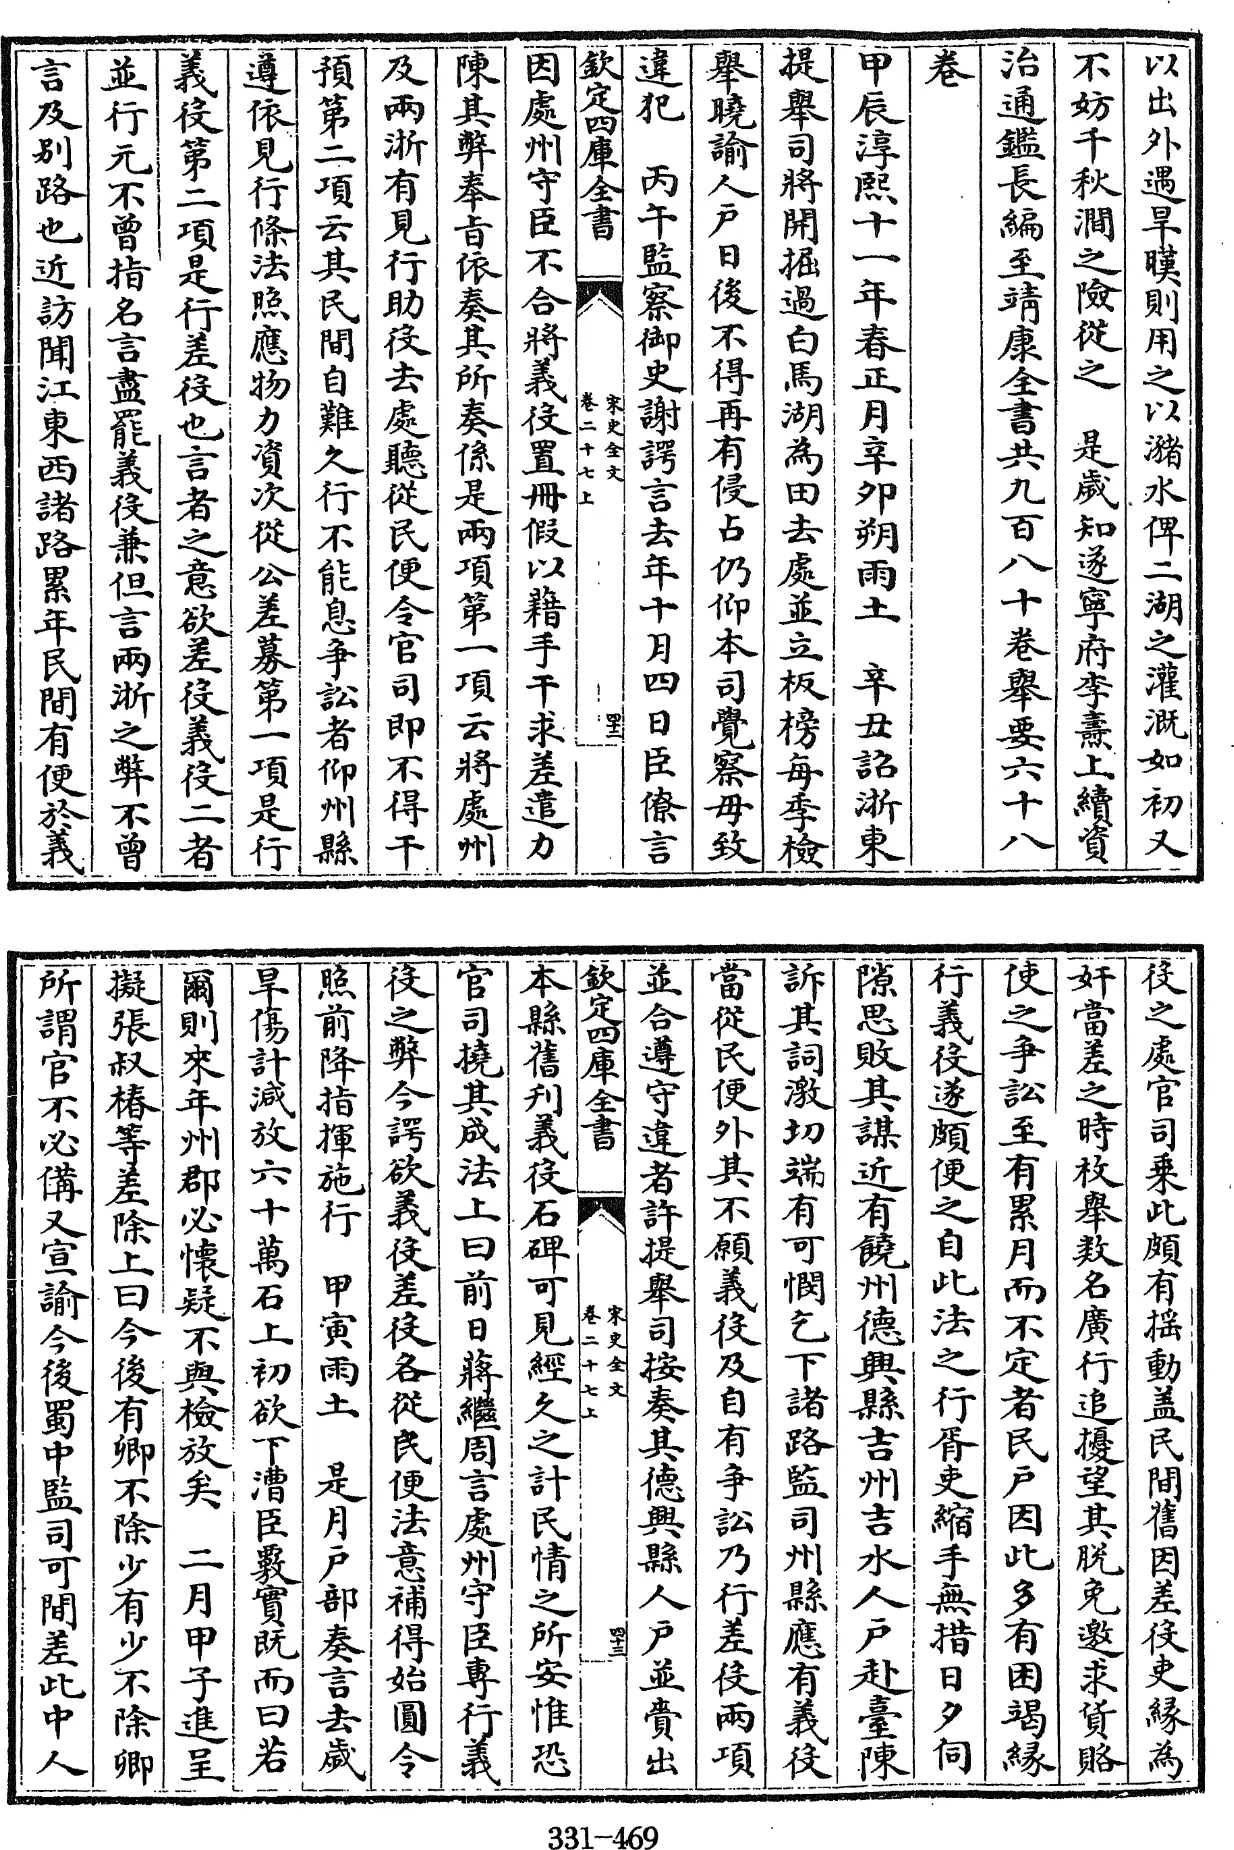 以出外遇旱暵則用之以瀦水俾二湖之灌溉如初又
不妨千秋澗之險從之　是歲知遂寧府李燾上續資
治通鑑長編至靖康全書共九百八十卷舉要六十八
卷
甲辰淳熙十一年春正月辛卯朔雨土　辛丑詔浙東
提舉司將開掘過白馬湖為田去處並立板榜每季檢
舉曉諭人戶日後不得再有侵占仍仰本司覺察毋致
違犯　丙午監察御史謝諤言去年十月四日臣僚言
欽定四庫全書
宋史全文
卷二十七上
四十二
因處州守臣不合將義役置冊假以藉手干求差遣力
陳其弊奉旨依奏其所奏係是兩項第一項云將處州
及兩浙有見行助役去處聽從民便令官司即不得干
預第二項云其民間自難久行不能息爭訟者仰州縣
遵依見行條法照應物力資次從公差募第一項是行
義役第二項是行差役也言者之意欲差役義役二者
並行元不曾指名言盡罷義役兼但言兩浙之弊不曾
言及別路也近訪聞江東西諸路累年民間有便於義
役之處官司乗此頗有揺動盖民間舊因差役吏緣為
奸當差之時枚舉數名廣行追擾望其脱免邀求貨賂
使之爭訟至有累月而不定者民戶因此多有困竭緣
行義役遂頗便之自此法之行胥吏縮手無措日夕伺
隙思敗其謀近有饒州德興縣吉州吉水人戶赴臺陳
訴其詞激切端有可憫乞下諸路監司州縣應有義役
當從民便外其不願義役及自有爭訟乃行差役兩項
並合遵守違者許提舉司按奏其德興縣人戶並賫出
欽定四庫全書
宋史全文
卷二十七上
四十三
本縣舊刋義役石碑可見經久之計民情之所安惟恐
官司撓其成法上曰前日蔣繼周言處州守臣專行義
役之弊今諤欲義役差役各從民便法意補得始圓令
照前降指揮施行　甲寅雨土　是月戶部奏言去歲
旱傷計減放六十萬石上初欲下漕臣覈實既而曰若
爾則來年州郡必懷疑不與檢放矣　二月甲子進呈
擬張叔椿等差除上曰今後有卿不除少有少不除卿
所謂官不必備又宣諭今後蜀中監司可間差此中人
331-469